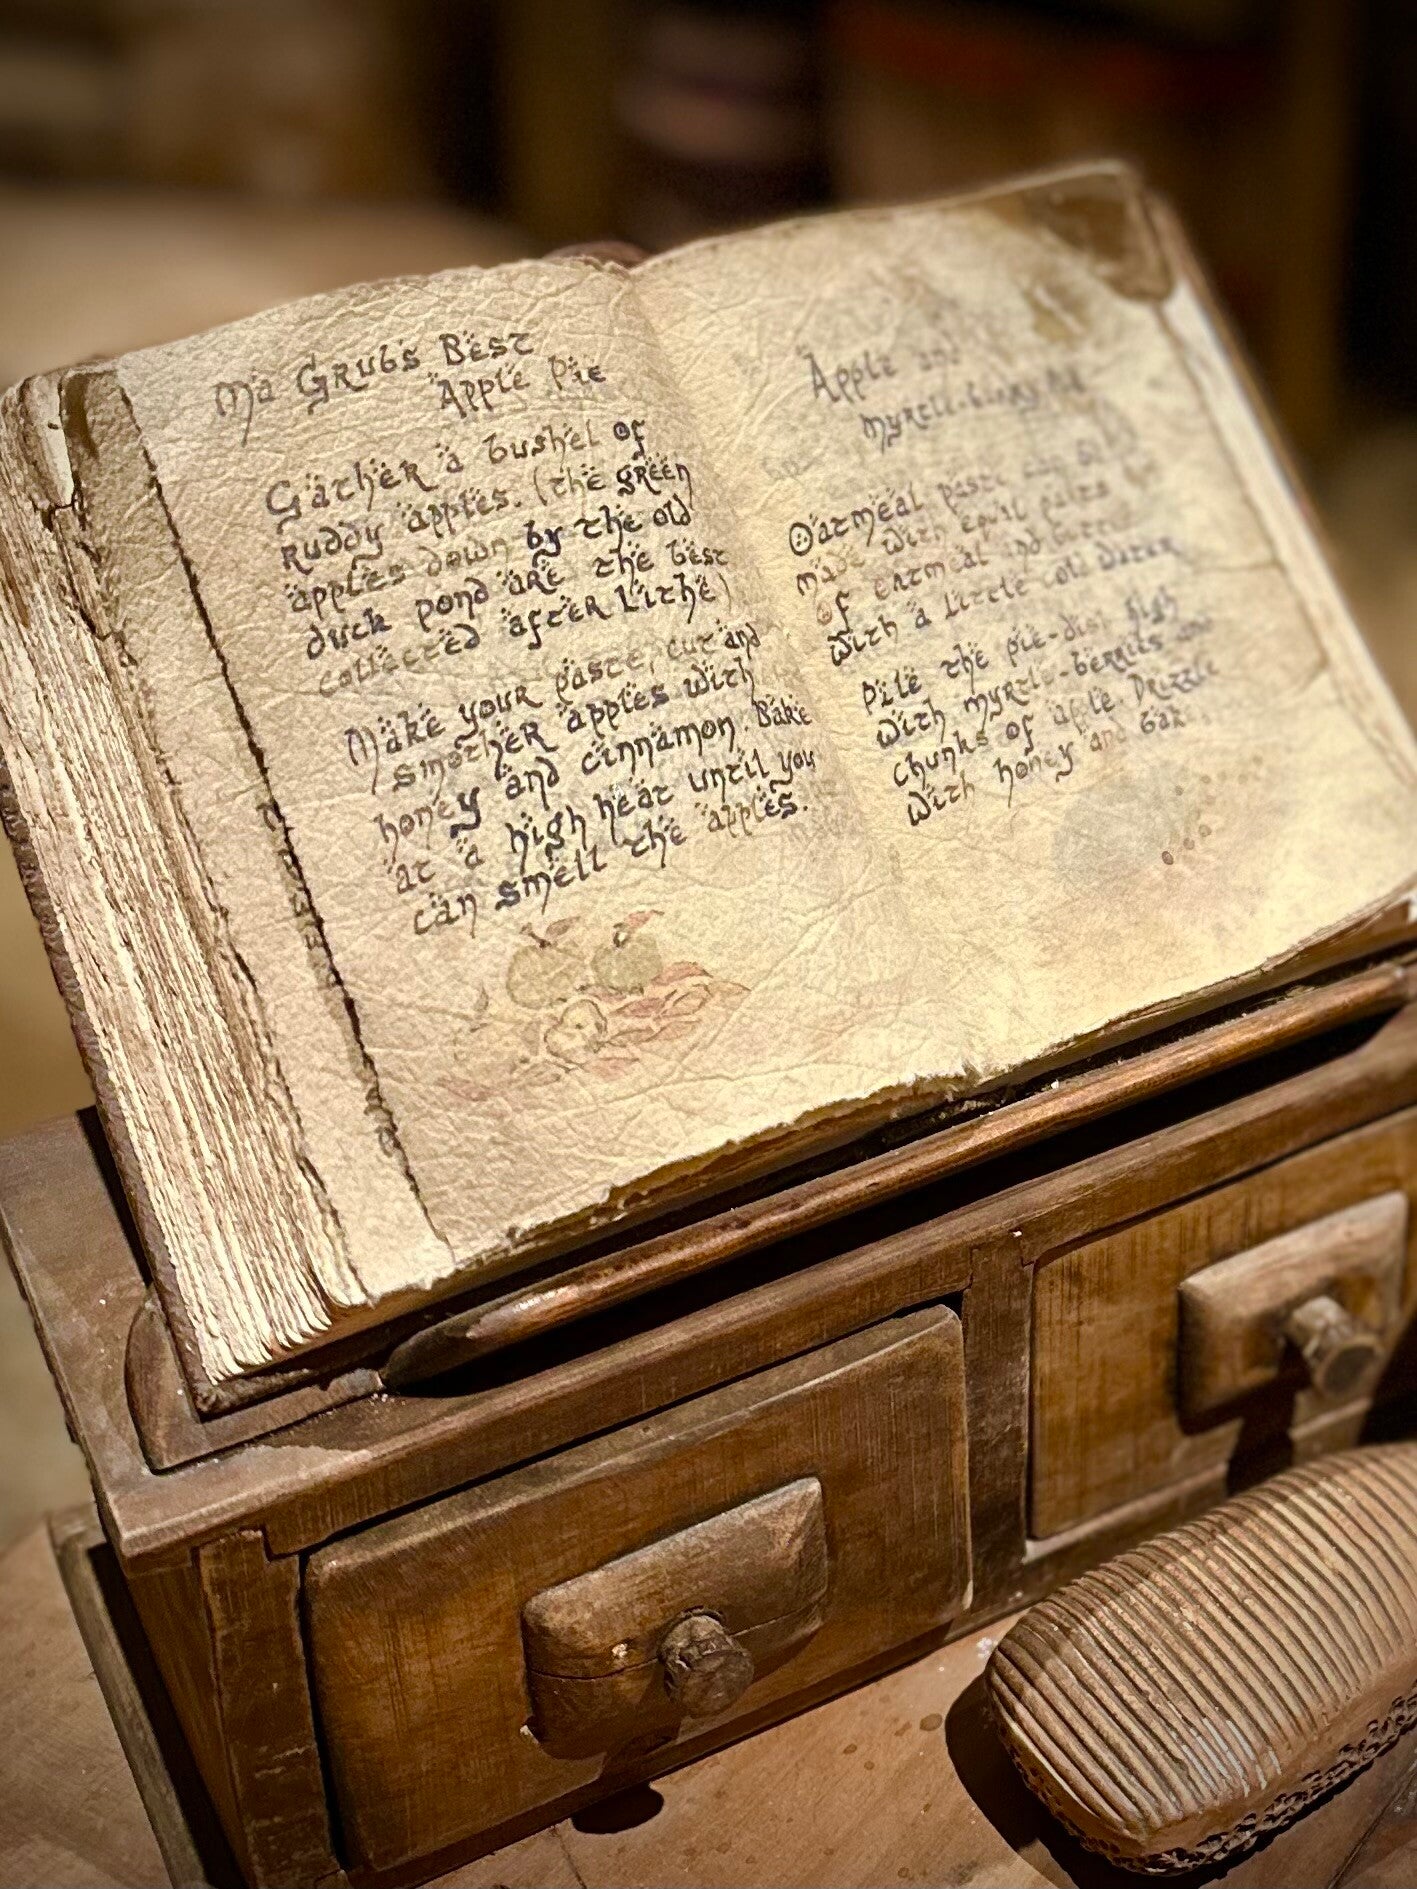 Ma Grubs Best
Apple Pie
Gather a bushel of
ruddy apples. (the green
apples down by the old
duck pond are the best
collected after Lithe)
Make your paste, cut and
smother apples with
honey and cinnamon. Bake
at a high heat until you
can smell the apples.
Apple and
Myrtle-berry Pie
Oatmeal paste can be
made with equil parts
of oatmeal and butter
with a little cold water
Pile the pie-dish high
with myrtle-berries and
chunks of apple. Drizzle
with honey and bake.